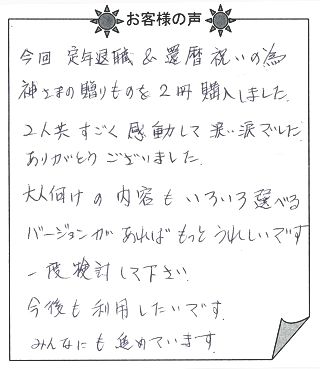 お客様の声
今回 定年退職 & 還暦祝いの為
神さまの贈りものを2冊購入しました。
2人共すごく感動して 涙、涙でした
ありがとうございました。
大人向けの内容もいろいろ選べる
バージョンがあればもっとうれしいです
一度検討して下さい
今後も利用したいです。
みんなにも進めています。